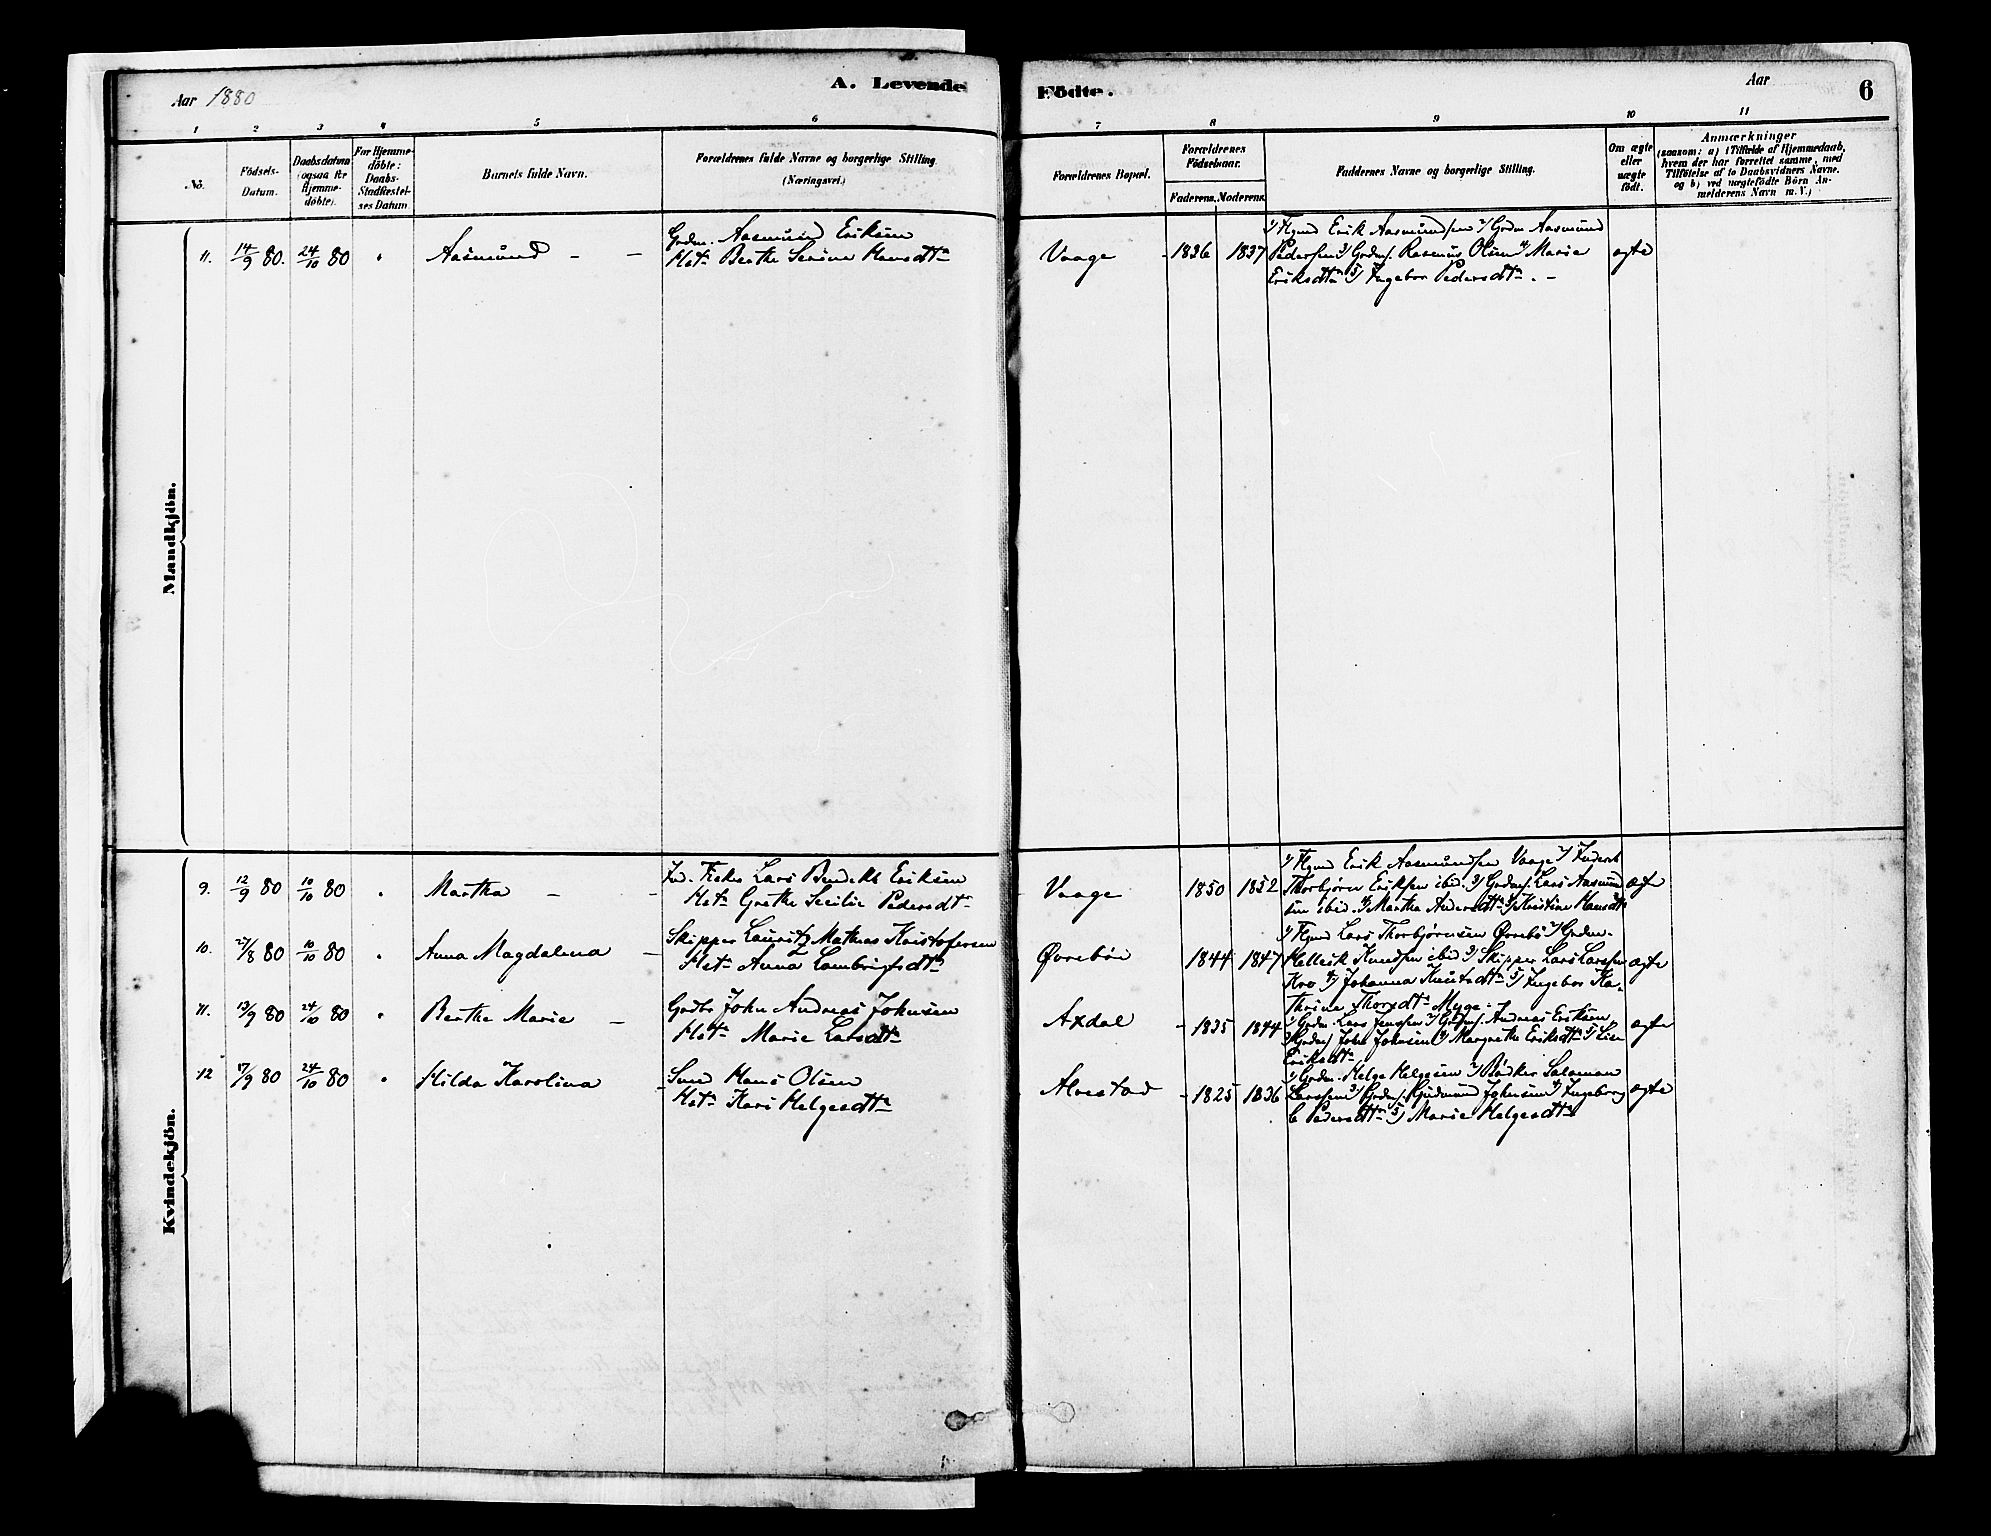 Aar 1880
A. Levende
Födte.
Aar
6
1 2 3 4 5 6 7 8 9 10 11
No.
Födsels-
Datum.
Daabsdatum
(ogsaa for
Hjemme-
döbte).
For Hjemme-
döbte:
Daabs-
Stadfæstel-
ses Datum
Barnets fulde Navn.
Forældrenes fulde Navne og borgerlige Stilling
(Næringsvei.)
Forældrenes Bopæl.
Forældrenes
Födselsaar.
Faderens. Moderens.
Faddernes Navne og borgerlige Stilling.
Om ægte
eller
uægte
födt.
Anmærkninger
(saasom: a) i Tilfælde af Hjemmedaab,
hvem der har forrettet samme, med
Tilföielse af to Daabsvidners Navne.
og b) ved uægtefödte Börn An-
melderens Navn m. V.)
Mandkjön.
11. 14/9 80. 24/10 80 " Aasmund - -
Grdm. Aasmund Eriksen
Hst. Berthe Serine Hansdtr
Vaage - 1836 1837
1) Ugmd Erik Aasmundsen 2) Grdm Aasmund
Pedersen 3) Grdms. Rasmus Olsen 4) Marie
Eriksdtr 5) Ingebor Pedersdtr. -
ægte
Kvindekjön.
9. 12/9 80 10/10 80 " Martha - -
Ind. Fisker Lars Bendik Eriksen
Hst. Grethe Secilie Pedersdtr
Vaage 1850 1852
1) Ugmd Erik Aasmundsen Vaage 2) Inderst
Thorbjörn Eriksen ibid. 3) Grdms. Lars Aasmund
sen ibid. 4) Martha Andersdtr 5) Kristine Hansdtr
ægte
10. 27/8 80 10/10 80 " Anna Magdalena -
Skipper Lauritz Mathias Kristofersen
Hst. Anna Lambrigtsdtr
Øreböe 1844 1847
1) Ugmd Lars Thorbjörnsen Ørebö 2) Grdm.
Helleik Knudsen ibid 3) Skipper Lars Larsen
Kro 4) Johanna Knutsdtr 5) Ingebor Ka-
thrine Thorsdtr Myge.
ægte
11. 13/9 80 24/10 80 " Berthe Marie -
Grdbr John Andreas Johnsen
Hst. Marie Larsdtr
Axdal - 1835 1844
1) Grdm. Lars Jensen 2) Grdms. Andreas Eriksen
3) Grdms John Johnsen 4) Margrethe Eriksdtr 5) Lise
Eriksdtr
ægte
12 17/9 80 24/10 80 " Hilda Karolina -
Smed Hans Olsen
Hst. Kari Helgesdtr
Alvestad - 1825 1836
1) Grdm. Helge Helgesen 2) Bödker Salamon
Larssen 3) Grdms. Gudmund Johnsen 4) Ingeborg
C Pedersdtr 5) Marie Helgesdtr
ægte